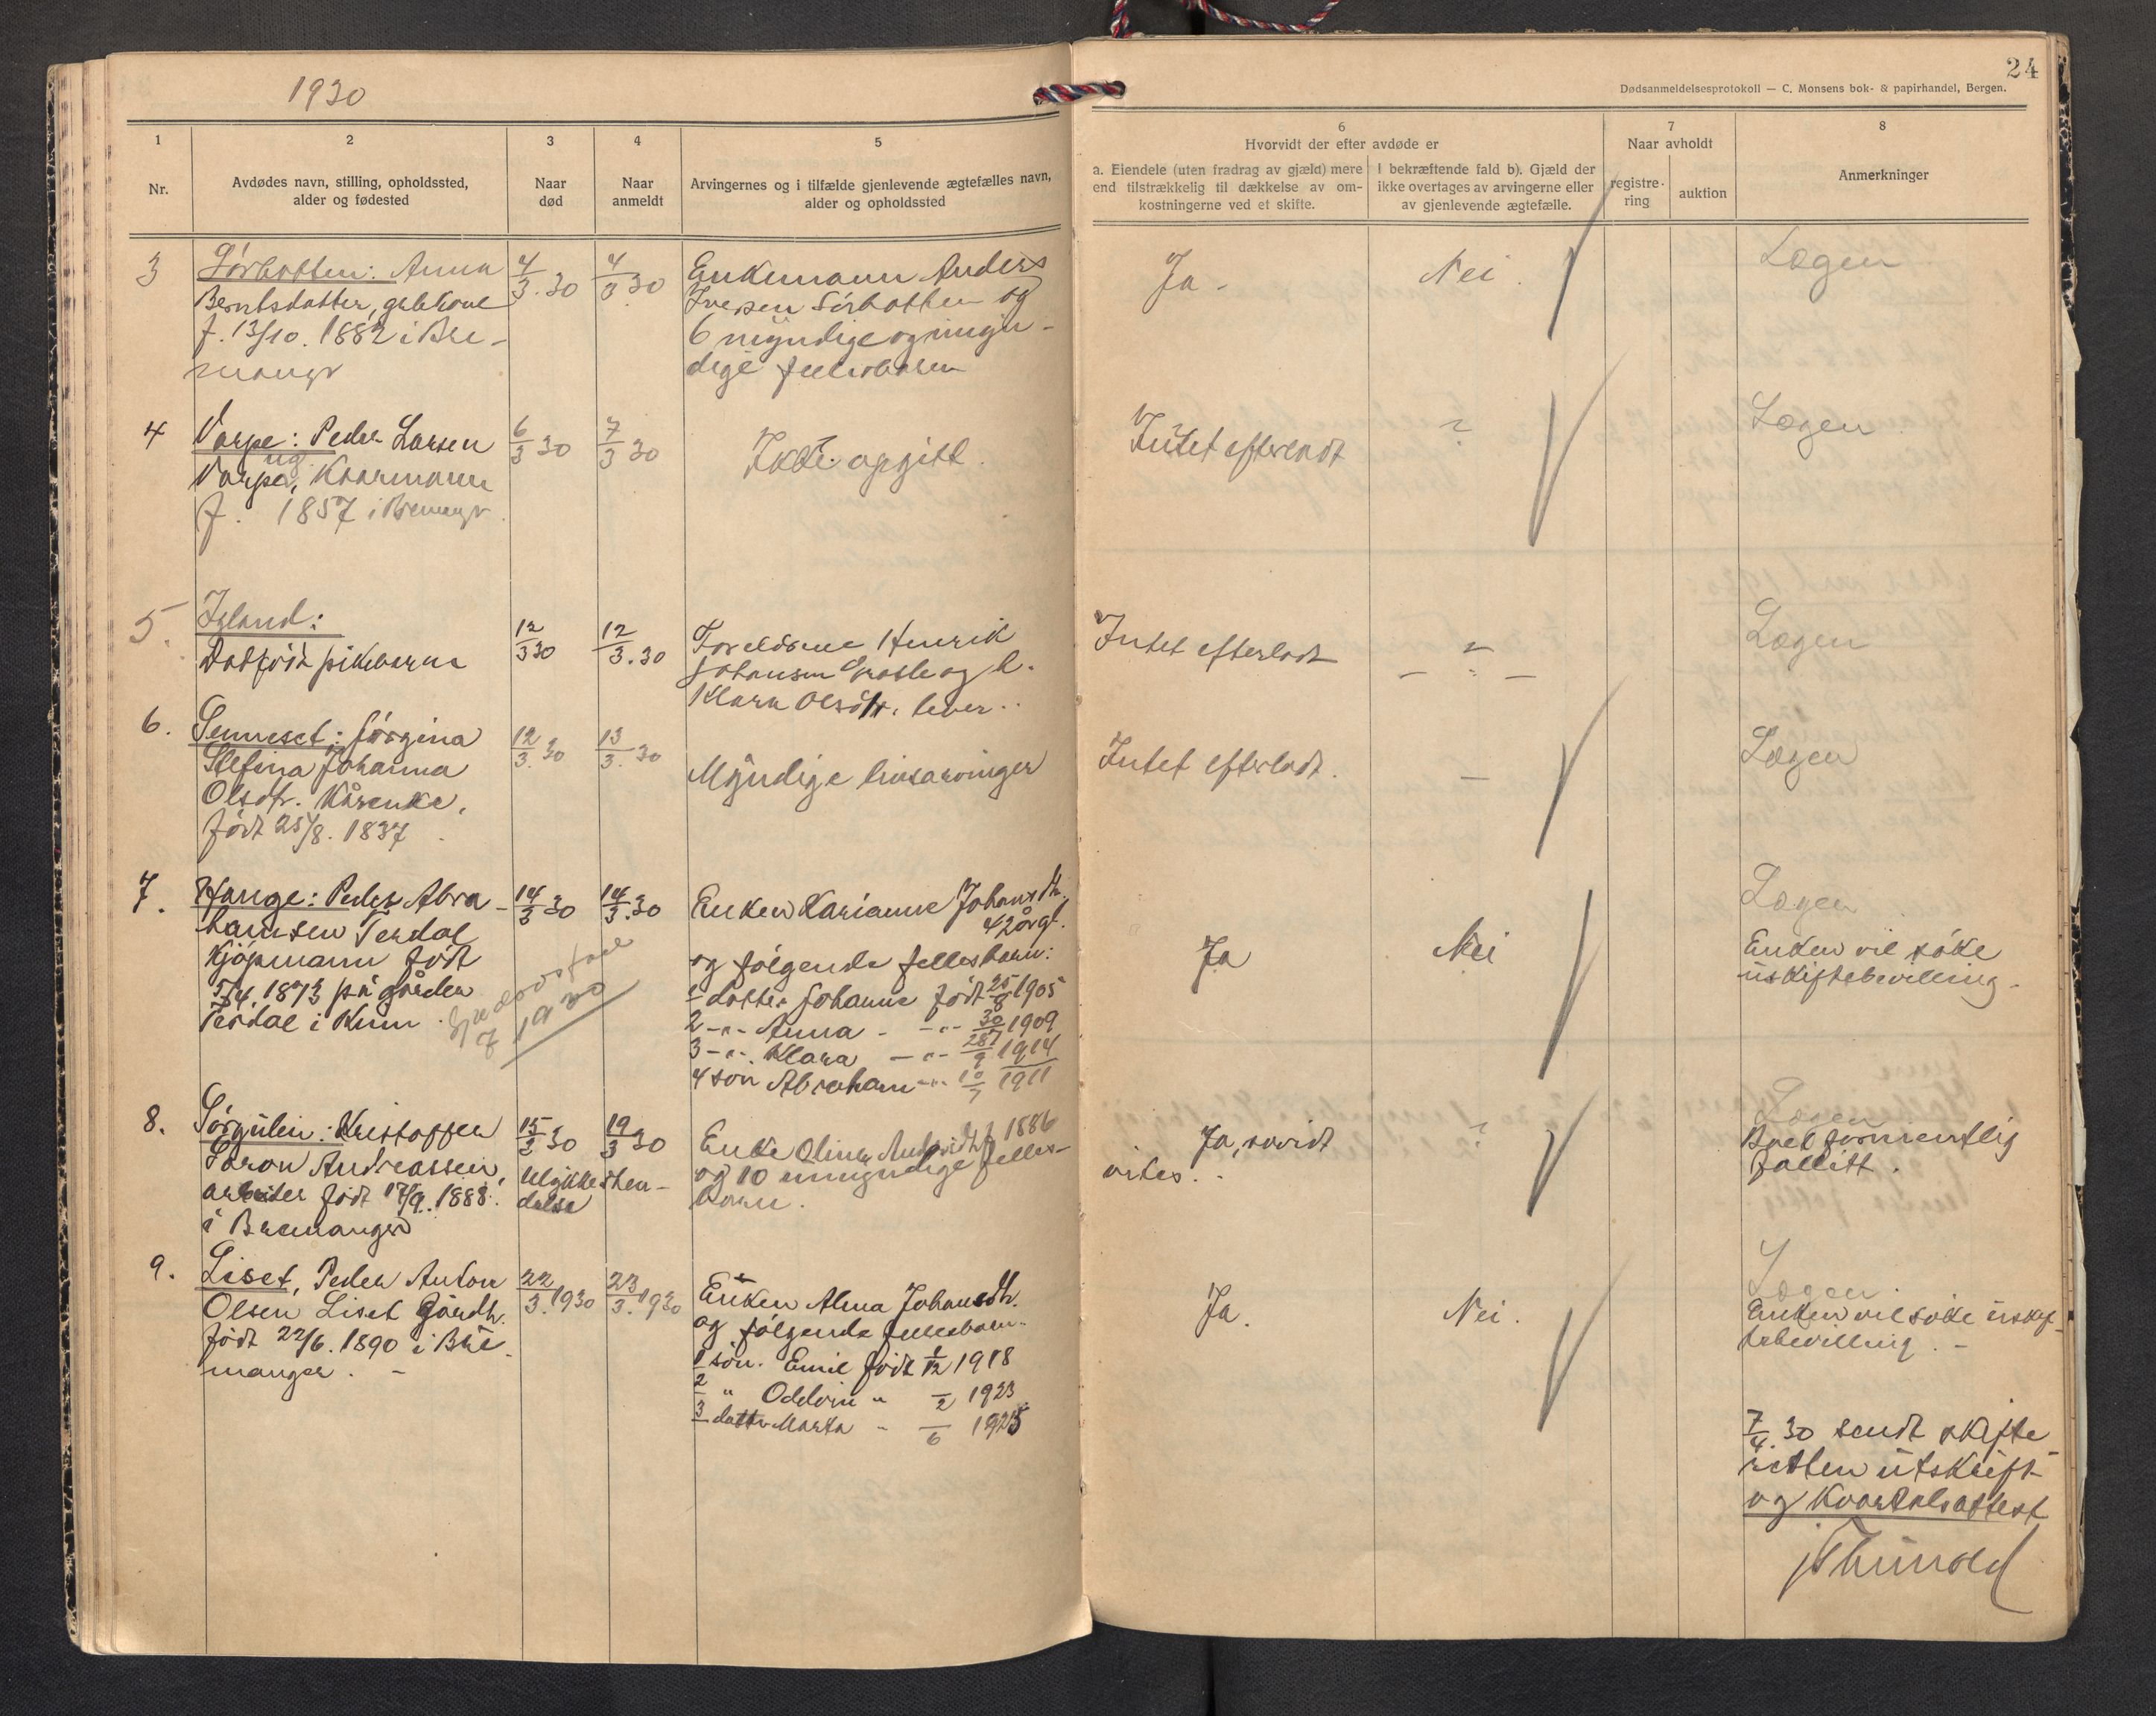 1930
24
Dødsanmeldelsesprotokoll — C. Monsens bok- & papirhandel, Bergen.
1
Nr.
2
Avdødes navn, stilling, opholdssted,
alder og fødested
3
Naar
død
4
Naar
anmeldt
5
Arvingernes og i tilfælde gjenlevende ægtefælles navn,
alder og opholdssted
6
Hvorvidt der efter avdøde er
a. Eiendele (uten fradrag av gjæld) mere
end tilstrækkelig til dækkelse av om-
kostningerne ved et skifte.
I bekræftende fald b). Gjæld der
ikke overtages av arvingerne eller
av gjenlevende ægtefælle.
7
Naar avholdt
registre-
ring
auktion
8
Anmerkninger
3
Sørbotten: Anna
Berntsdatter, gaardkone
f. 13/10. 1882 i Bre-
manger
4/3. 30
4/3 30
Enkemann Anders
Iversen Sørbotten og
6 myndige og umyn-
dige fellesbarn
Ja -
Nei.
Logen
4
Varpe: Peder Larsen
Varpe, ug. Kaarmann
f. 1857 i Bremangr.
6/3 30
7/3 30
Ikke opgitt.
Intet efterladt
?
Logen
5.
Igland:
Dødfødt pikebarn
12/3 30
12/3. 30
Foreldrene Henrik
Johansen og h.
Klara Olsdtr. lever.
Intet efterladt
— " —
Logen
6.
Senneset: Jørgina
Stefina Johanna
Olsdtr. Kårenke,
født 25/8. 1837.
12/3. 30
13/3. 30
Myndige livsarvinger
Intet efterladt.
—
Logen
7.
Hauge: Peder Abra-
hamsen Terdal
Kjøpmann født
5/4. 1873 på gården
Terdal i Kinn.
1930
14/3 30
14/3. 30
Enken Karianne Johansdtr.
42 år gl.
og følgende fellesbarn:
1 datter Johanne født 25/8 1905
2 -"- Anna - -"- 30/7 1909
3 -"- Klara -"- 28/9 1914
4 søn Abraham -"- 10/7 1911
Ja
Nei
Logen
Enken vil søke
uskiftebevilling.
8.
Sørgulen: Kristoffer
Andreassen,
arbeider født 17/9. 1888.
i Bremanger
15/2 30
Ulykkeshen-
delse
19/3 30
Enke Olina f. 1886
og 10 umyndige felles-
barn.
Ja, savidt
vites.
?
Logen
Boet formentlig
fallitt.
9.
Liset, Peder Anton
Olsen Liset Gårdbr.
født 22/6. 1890 i Bre-
manger. -
22/3. 1930
23/3. 1930
Enken Alma Johansdtr.
og følgende fellesbarn.
1 søn. Emil født 1/12 1918
2 " Oddvin " /2 1923
3 datter Marta - /6 1925
Ja.
Nei.
Logen.
Enken vil søke uskif-
tebevilling. -
7/4. 30 sendt skifte-
retten utskrift
og Kvartalsattest